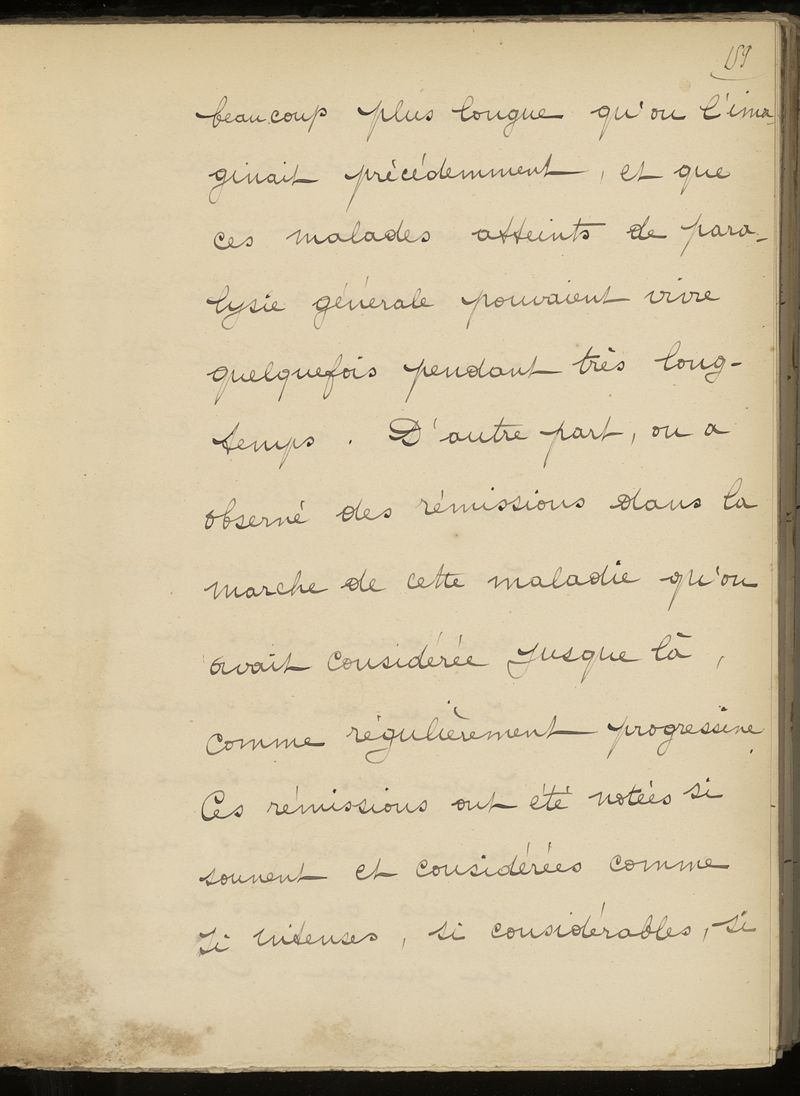 159
beaucoup plus longue qu'on l'ima-
ginait précédemment, et que
ces malades atteints de para-
lysie générale pouvaient vivre
quelquefois pendant très long-
temps. D'autre part, on a
observé des rémissions dans la
marche de cette maladie qu'on
avait considérée jusque là,
comme régulièrement progressive.
Ces rémissions ont été notées si
souvent et considérées comme
si intenses, si considérables, si